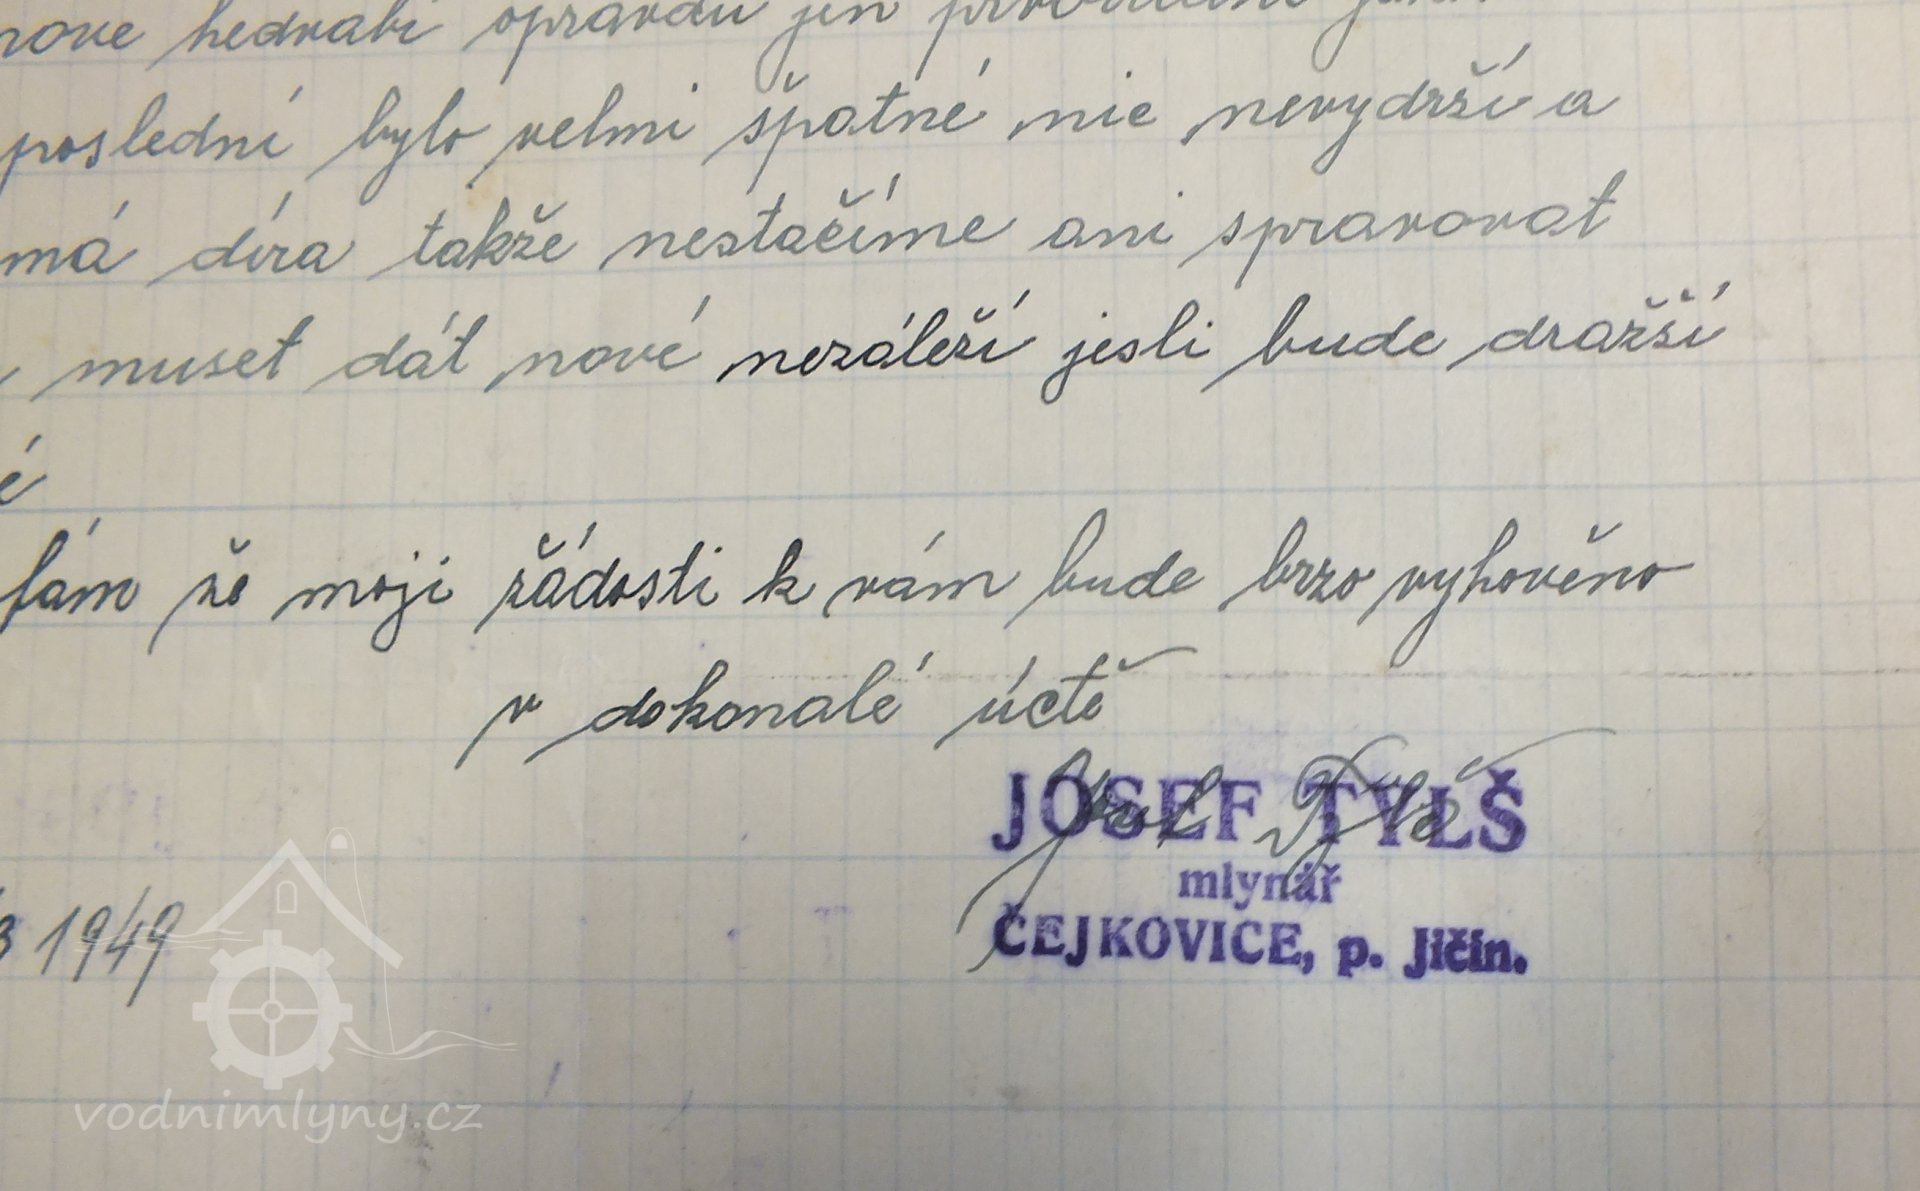 hedvábí opravdu jen
poslední bylo velmi špatné nic nevydrží a
má díra takže nestačíme ani spravovat
muset dát nové nezáleží jesli bude dražší
é
fám že moji žádosti k vám bude brzo vyhověno
v dokonalé úctě
Josef Tylš
JOSEF TYLŠ
mlynář
ČEJKOVICE, p. Jičín.
3 1949
vodnimlyny.cz